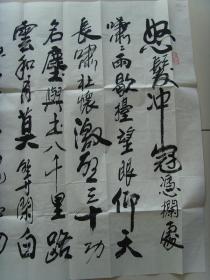 怒髮冲冠憑欄處
瀟瀟雨歇擡望眼仰天
長嘯壯懷激烈三十功
名塵與土八千里路
雲和月莫等閒白